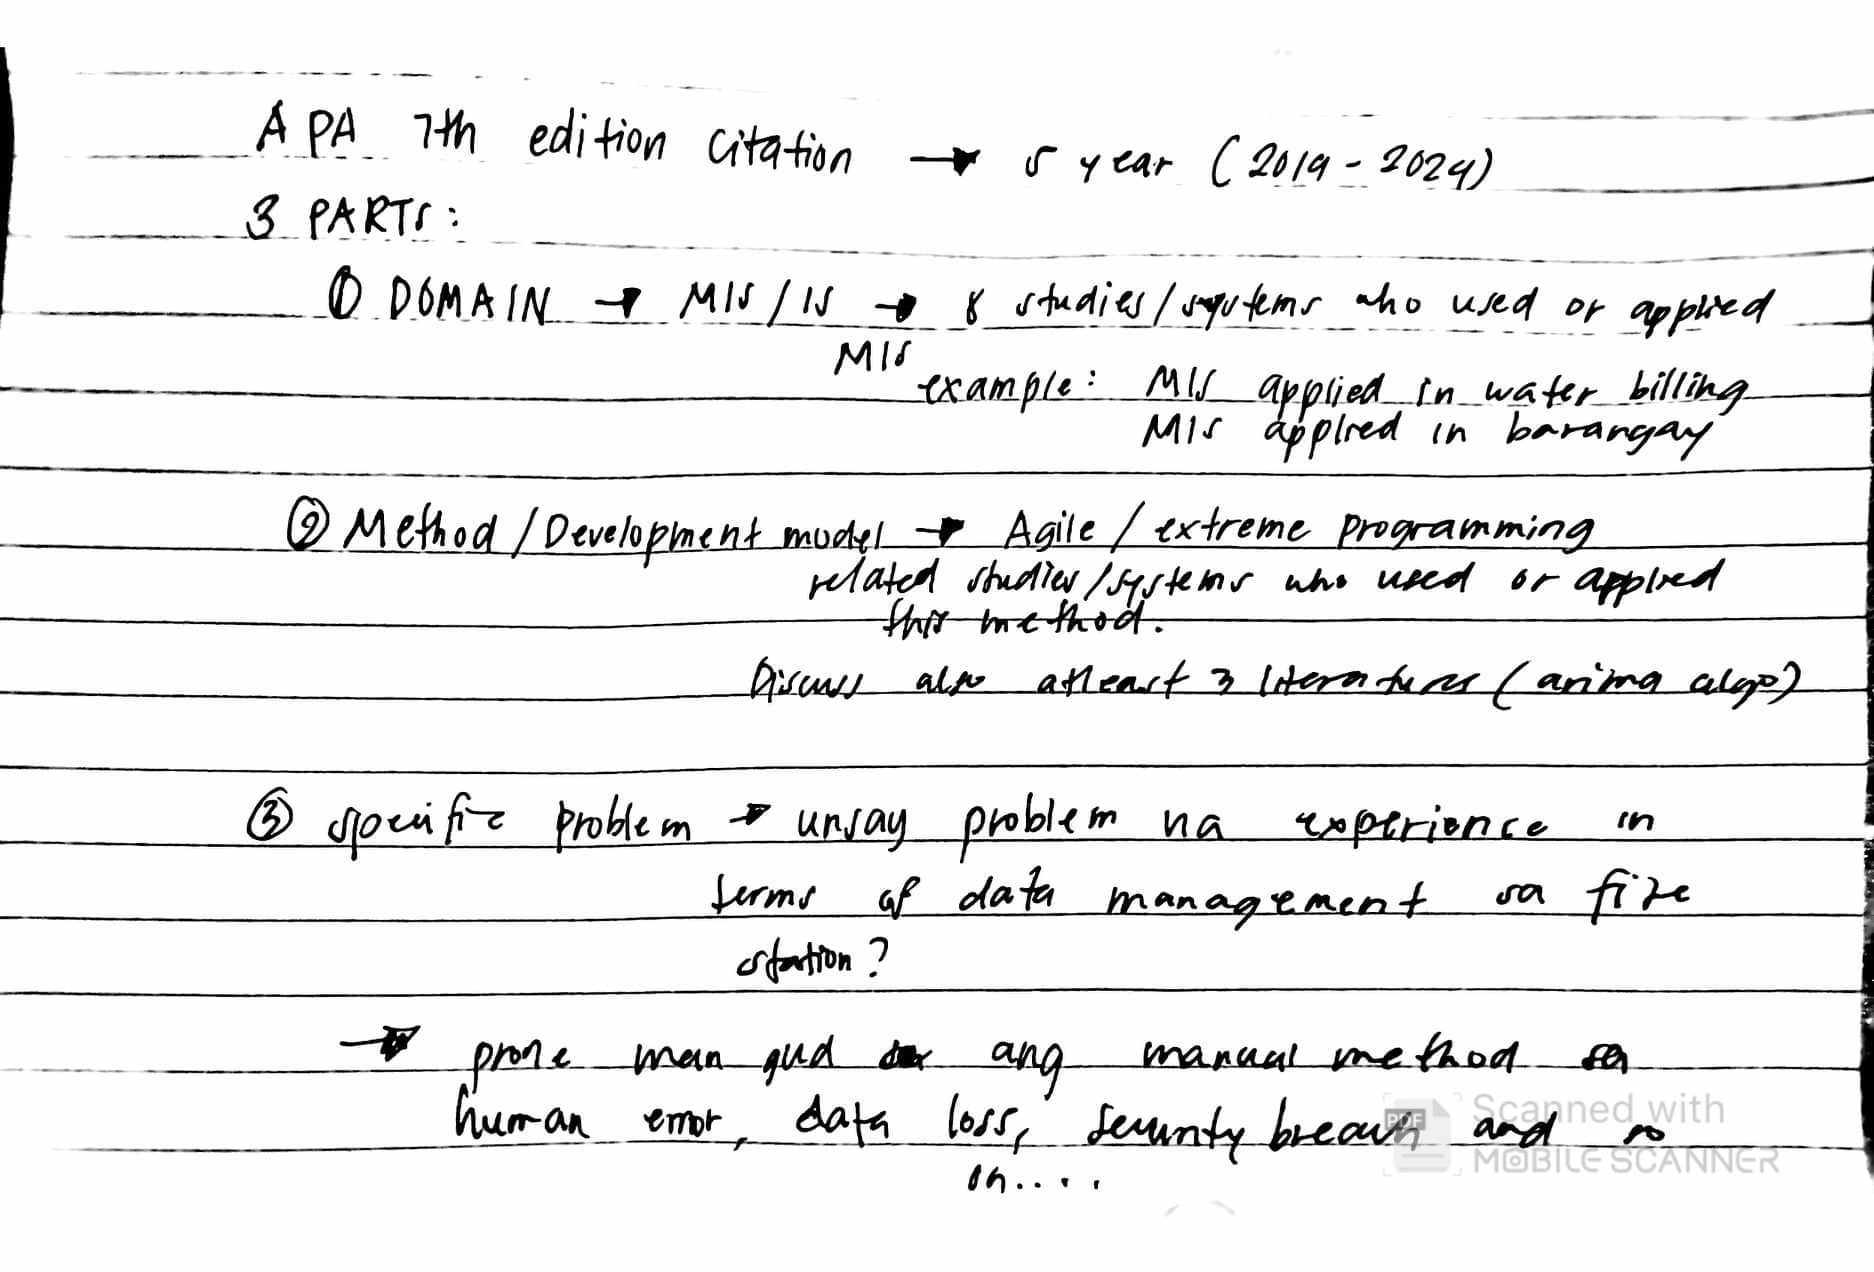 APA 7th edition citation → 5 year (2019 - 2024)
3 PARTS:
① DOMAIN → MIS / IS → 8 studies/systems who used or applied
MIS
example: MIS applied in water billing
MIS applied in barangay
② Method / Development model → Agile / extreme programming
related studies / systems who used or applied
this method.
Discuss also atleast 3 literatures (arima algo)
③ specific problem → unsay problem na experience in
terms of data management sa fire
station?
→ prone man gud ang manual method sa
human error, data loss, security breach and so
on....
Scanned with
MOBILE SCANNER
PDF